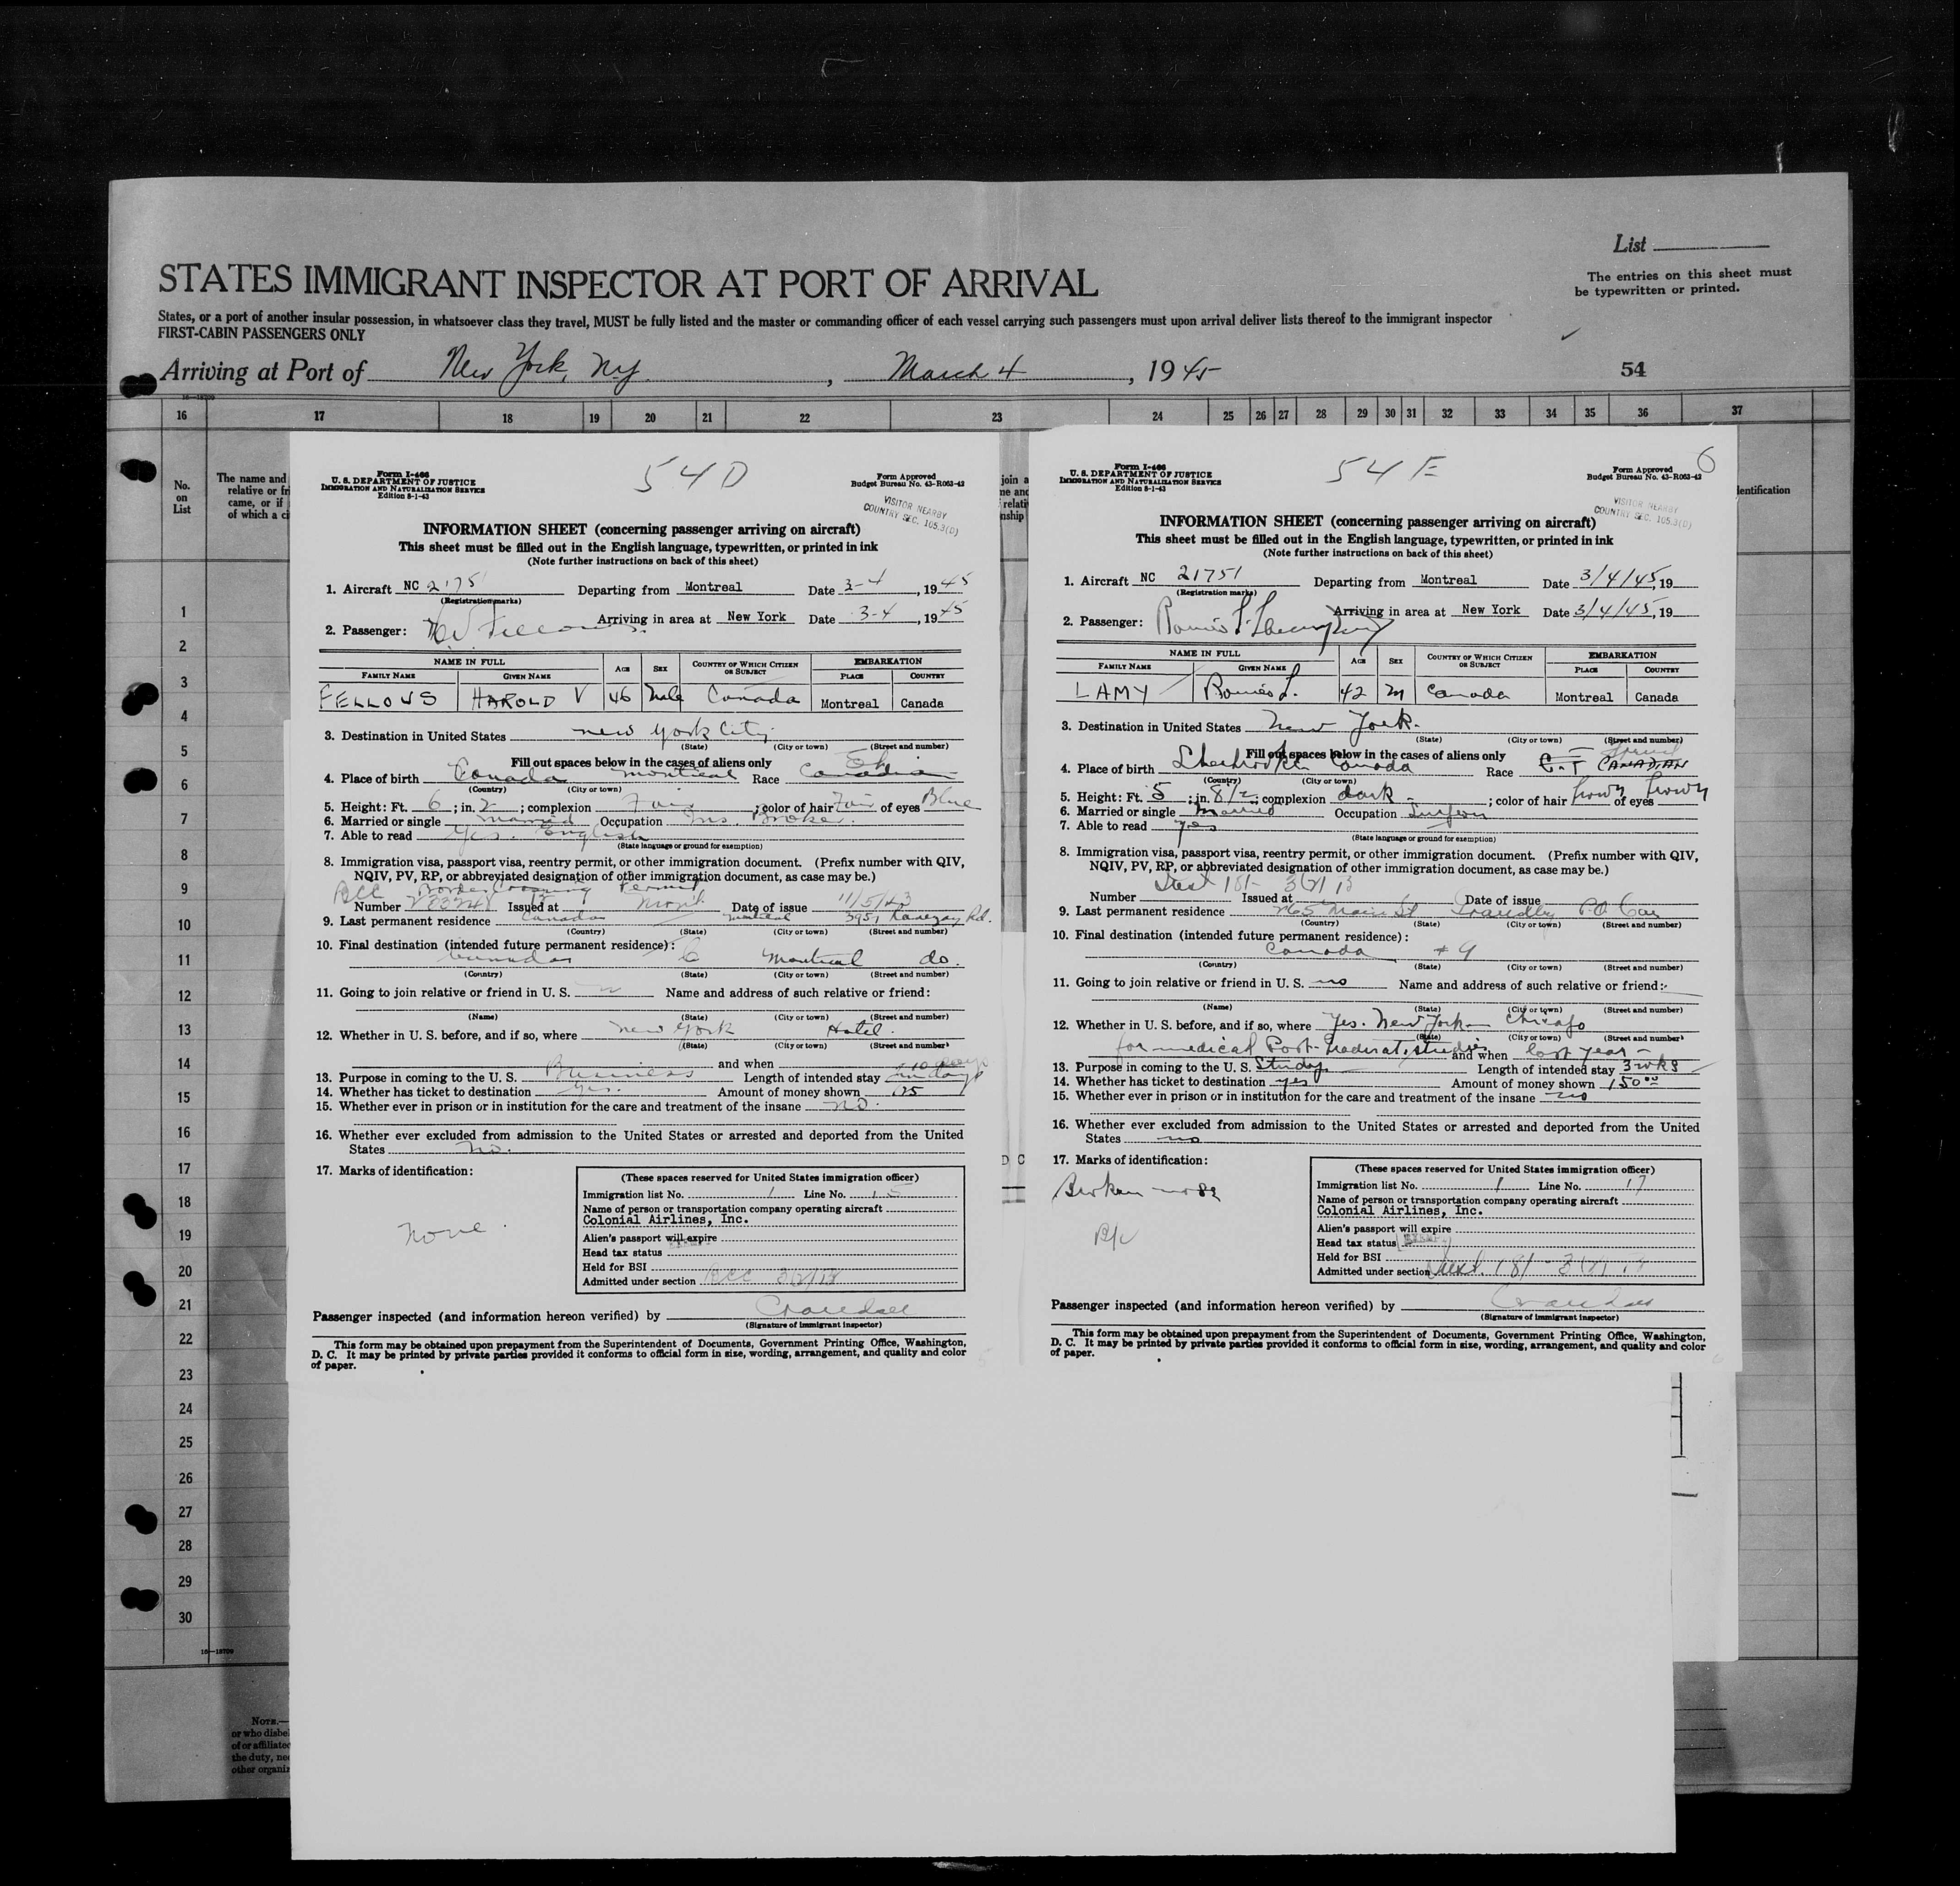 List
The entries on this sheet must
be typewritten or printed.
STATES IMMIGRANT INSPECTOR AT PORT OF ARRIVAL
States, or a port of another insular possession, in whatsoever class they travel, MUST be fully listed and the master or commanding officer of each vessel carrying such passengers must upon arrival deliver lists thereof to the immigrant inspector
FIRST-CABIN PASSENGERS ONLY
Arriving at Port of New York, N.Y. , March 4 , 1945
54
16—18709
16 17 18 19 20 21 22 23 24 25 26 27 28 29 30 31 32 33 34 35 36 37
No.
on
List
The name and
relative or fri
came, or if
of which a ci
join a
me and
relati
nship
dentification
1
2
3
4
5
6
7
8
9
10
11
12
13
14
15
16
17
18
19
20
21
22
23
24
25
26
27
28
29
30
16—18709
NOTE.—
or who disbel
of or affiliated
the duty, nec
other organiz
D C
Form I-466
U. S. DEPARTMENT OF JUSTICE
IMMIGRATION AND NATURALIZATION SERVICE
Edition 8-1-43
54D
Form Approved
Budget Bureau No. 43-R063-42
VISITOR NEARBY
COUNTRY SEC. 105.3(D)
INFORMATION SHEET (concerning passenger arriving on aircraft)
This sheet must be filled out in the English language, typewritten, or printed in ink
(Note further instructions on back of this sheet)
1. Aircraft NC 21751 Departing from Montreal Date 3-4 , 1945
(Registration marks)
Arriving in area at New York Date 3-4 , 1945
2. Passenger: HV Fellows
NAME IN FULL AGE SEX COUNTRY OF WHICH CITIZEN OR SUBJECT EMBARKATION
FAMILY NAME GIVEN NAME PLACE COUNTRY
FELLOWS HAROLD V 46 Male Canada Montreal Canada
3. Destination in United States new york City
(State) (City or town) (Street and number)
Fill out spaces below in the cases of aliens only
4. Place of birth Canada montreal Race Canadian
(Country) (City or town)
5. Height: Ft. 6 ; in. 2 ; complexion Fair ; color of hair Fair of eyes Blue
6. Married or single married Occupation Ins. Broker.
7. Able to read Yes. English
(State language or ground for exemption)
8. Immigration visa, passport visa, reentry permit, or other immigration document. (Prefix number with QIV,
NQIV, PV, RP, or abbreviated designation of other immigration document, as case may be.)
BCC Border Crossing Permit
Number Issued at Mont. Date of issue 11/5/43
9. Last permanent residence Canada montreal 3951 Rd.
(Country) (State) (City or town) (Street and number)
10. Final destination (intended future permanent residence):
Canada Montreal do.
(Country) (State) (City or town) (Street and number)
11. Going to join relative or friend in U. S. Name and address of such relative or friend:
(Name) (State) (City or town) (Street and number)
12. Whether in U. S. before, and if so, where New York Hotel.
(State) (City or town) (Street and number)
and when
13. Purpose in coming to the U. S. Business Length of intended stay 10 days
14. Whether has ticket to destination Yes. Amount of money shown 125
15. Whether ever in prison or in institution for the care and treatment of the insane no.
16. Whether ever excluded from admission to the United States or arrested and deported from the United
States No.
17. Marks of identification:
none.
(These spaces reserved for United States immigration officer)
Immigration list No. 1 Line No. 15
Name of person or transportation company operating aircraft
Colonial Airlines, Inc.
Alien's passport will expire
Head tax status
Held for BSI
Admitted under section BCC 3(2)/13
Passenger inspected (and information hereon verified) by Crandall
(Signature of immigrant inspector)
This form may be obtained upon prepayment from the Superintendent of Documents, Government Printing Office, Washington,
D. C. It may be printed by private parties provided it conforms to official form in size, wording, arrangement, and quality and color
of paper.
Form I-466
U. S. DEPARTMENT OF JUSTICE
IMMIGRATION AND NATURALIZATION SERVICE
Edition 8-1-43
54 E
6
Form Approved
Budget Bureau No. 43-R063-42
VISITOR NEARBY
COUNTRY SEC. 105.3(D)
INFORMATION SHEET (concerning passenger arriving on aircraft)
This sheet must be filled out in the English language, typewritten, or printed in ink
(Note further instructions on back of this sheet)
1. Aircraft NC 21751 Departing from Montreal Date 3/4/45, 19
(Registration marks)
Arriving in area at New York Date 3/4/45, 19
2. Passenger:
NAME IN FULL AGE SEX COUNTRY OF WHICH CITIZEN OR SUBJECT EMBARKATION
FAMILY NAME GIVEN NAME PLACE COUNTRY
LAMY L. 42 M Canada Montreal Canada
3. Destination in United States New York.
(State) (City or town) (Street and number)
Fill out spaces below in the cases of aliens only
4. Place of birth Sherbrooke Canada Race CANADIAN
(Country) (City or town)
5. Height: Ft. 5 ; in. 8 1/2 ; complexion dark ; color of hair brown of eyes brown
6. Married or single Married Occupation Surgeon
7. Able to read yes
(State language or ground for exemption)
8. Immigration visa, passport visa, reentry permit, or other immigration document. (Prefix number with QIV,
NQIV, PV, RP, or abbreviated designation of other immigration document, as case may be.)
Inst 181- 3(2) 13
Number Issued at Date of issue
9. Last permanent residence Main St P.Q. Can
(Country) (State) (City or town) (Street and number)
10. Final destination (intended future permanent residence):
Canada # 9
(Country) (State) (City or town) (Street and number)
11. Going to join relative or friend in U. S. no Name and address of such relative or friend:
(Name) (State) (City or town) (Street and number)
12. Whether in U. S. before, and if so, where Yes. New York - Chicago
(State) (City or town) (Street and number)
for medical Post-graduate studies and when last year -
13. Purpose in coming to the U. S. Study. Length of intended stay 3 wks
14. Whether has ticket to destination yes Amount of money shown 150.00
15. Whether ever in prison or in institution for the care and treatment of the insane no
16. Whether ever excluded from admission to the United States or arrested and deported from the United
States no
17. Marks of identification:
Broken nose
B/c
(These spaces reserved for United States immigration officer)
Immigration list No. 1 Line No. 17
Name of person or transportation company operating aircraft
Colonial Airlines, Inc.
Alien's passport will expire
Head tax status EXEMPT
Held for BSI
Admitted under section Inst. 181 - 3(2) 13
Passenger inspected (and information hereon verified) by Crandall
(Signature of immigrant inspector)
This form may be obtained upon prepayment from the Superintendent of Documents, Government Printing Office, Washington,
D. C. It may be printed by private parties provided it conforms to official form in size, wording, arrangement, and quality and color
of paper.